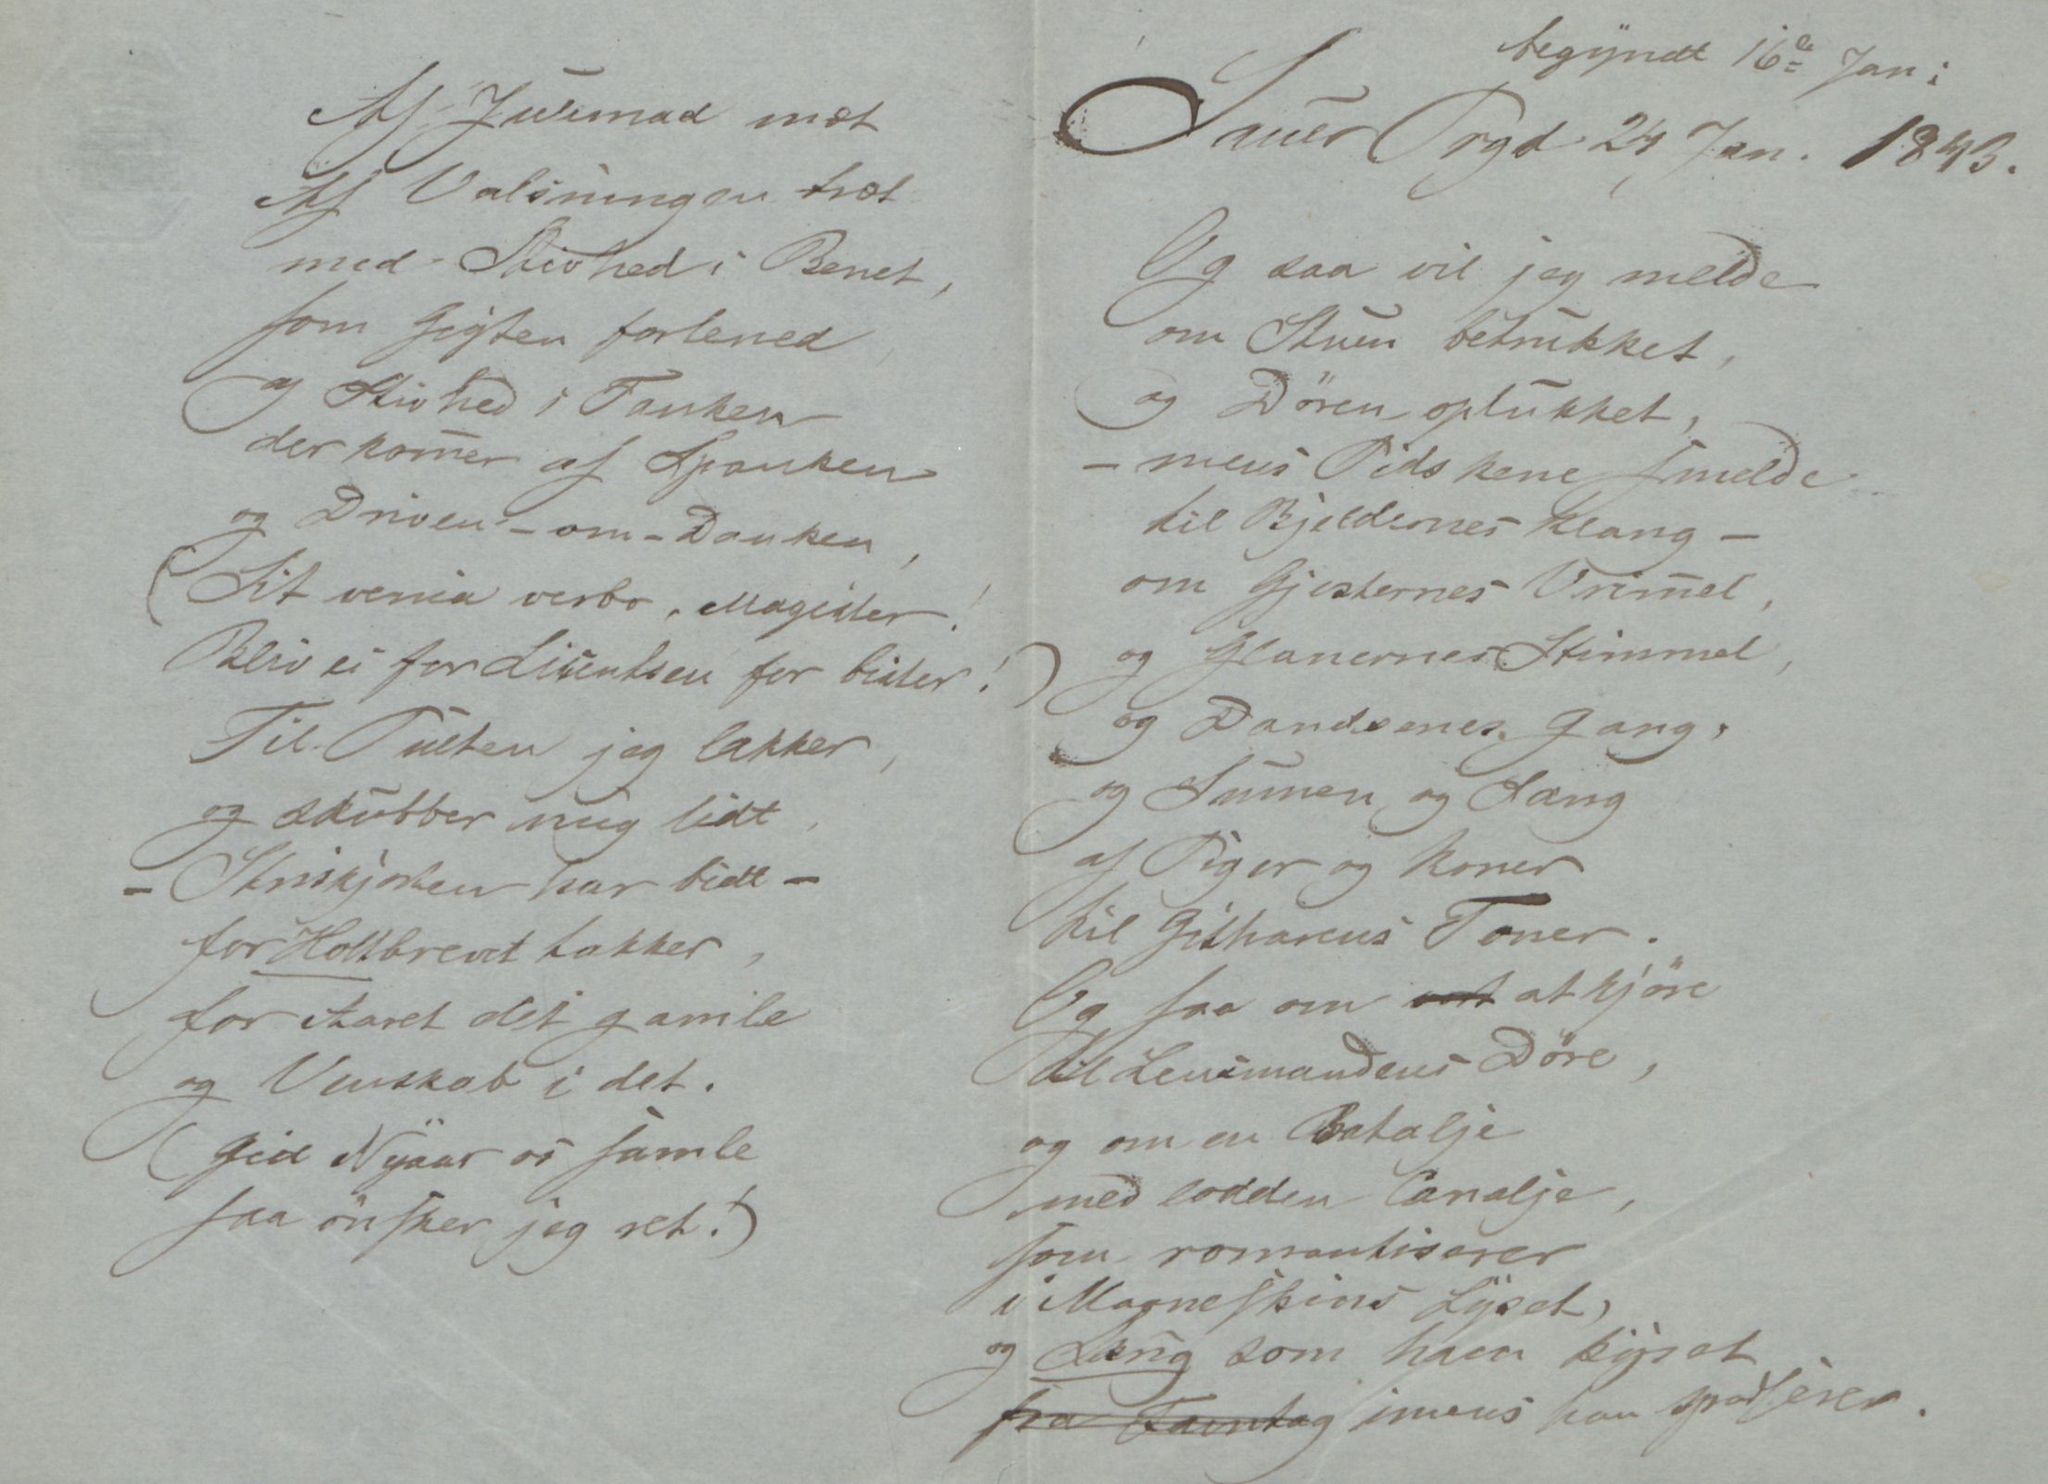 Af Julemad mæt
Af Valsningen træt
med Stivhed i Benet,
som Gigten forlened,
og Stivhed i Tanken
der kom̅er af Spanken
og Driven-om-Danken,
(Sit venia verbo, Magister!
Bliv ei for Licentsen for bister!)
Til Pulten jeg lakker,
og skubber mig lidt,
– Striskjorten har bidt –
for Holtbrevet takker,
for Aaret det gamle
og Venskab i det.
(Gid Nyaar os samle
saa önsker jeg ret!)
begyndt 16de Jan:
Sauer Prgd 24 Jan. 1843.
Og saa vil jeg melde
om Stuen betrukket,
og Dören oplukket,
– mens Pidskene smelde
til Bjeldernes Klang –
om Gjesternes Vrim̅el,
og Glanernes Stimmel,
og Dandsenes Gang,
og Sumen og Sang
af Piger og Koner
til Githarens Toner.
Og saa om at kjöre
til Lensmandens Döre,
og om en Batalje
med lodden Canalje,
som romantiserer
i Maaneskins Lyset,
og som haver kyset
fra Tavntag imens han spadserer.